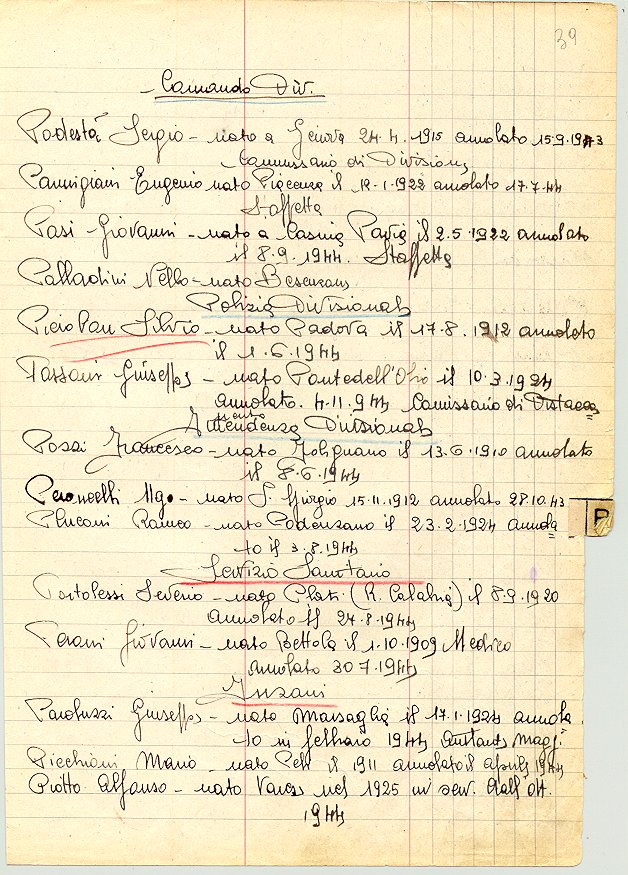 39
Comando Div.
Podestà Sergio - nato a Genova 24.4.1915 arruolato 15.9.1943
Commissario di Divisione
Parmigiani Eugenio nato Piacenza il 1922 arruolato 17.7.44
Staffetta
Pasi Giovanni - nato a Pavia il 2.5.1922 arruolato
il 8.9.1944. Staffetta
Palladini Nello - nato
Polizia Divisionale
Silvio - nato Padova il 17.8.1912 arruolato
il 1.6.1944
Passani Giuseppe - nato Pontedell'Olio il 10.3.1924
arruolato. 4.11.944 Comissario di
Divisionale
Pozzi Francesco - nato il 13.6.1910 arruolato
il 8.6.1944
Ugo - nato S. Giorgio 15.11.1912 arruolato 28.10.43
P
nato Podenzano il 23.2.1924 arruola
to il 3.8.1944
Servizio Sanitario
Portolessi Severio - nato Plati (R. Calabria) il 8.9.1920
arruolato il 24.8.1944
Perani Giovanni - nato Bettola il 1.10.1909 Medico
arruolato 30 7.1944
Inzani
Paroluzzi Giuseppe - nato Marsaglia il 17.1.1924 arruola
to in febbraio 1944 Aiutante Magg.
Picchioni Mario - nato il 1911 arruolato il aprile 1944
Piotto Alfonso - nato Varese nel 1925 in serv. dall'ott.
1944